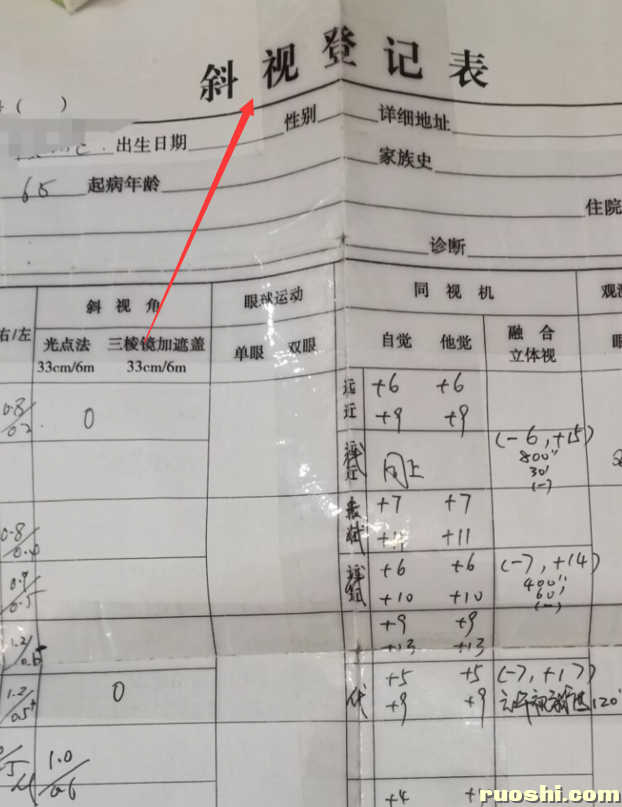 斜视登记表
( )
出生日期 性别 详细地址
65 起病年龄 家族史
住院
诊断
右/左 斜视角 眼球运动 同视机 观
光点法 三棱镜加遮盖 单眼 双眼 自觉 他觉 融合
33cm/6m 33cm/6m 立体视
远 +6 +6
0.8/ 0 近 +9 +9
(-6,+15)
同上 800"
30'
(-)
+7 +7
0.8/0.4 +11
+6 +6 (-7,+14)
0.9/0.5 +10 +10 400"
60'
(-)
+9 +9
1.2/0.6 +13 +13
1.2/0.5+ 0 +5 +5 (-7,+17)
+9 +9 120"
1.0/0.6
+4 +
ruoshi.com